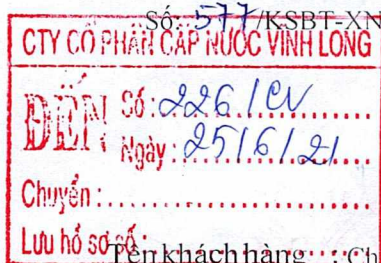 Số: 577/KSBT-XN
CTY CỔ PHẦN CẤP NƯỚC VĨNH LONG
ĐẾN Số: 226/CV
Ngày: 25/6/21
Chuyển:
Lưu hồ sơ số:
Tên khách hàng : Ch